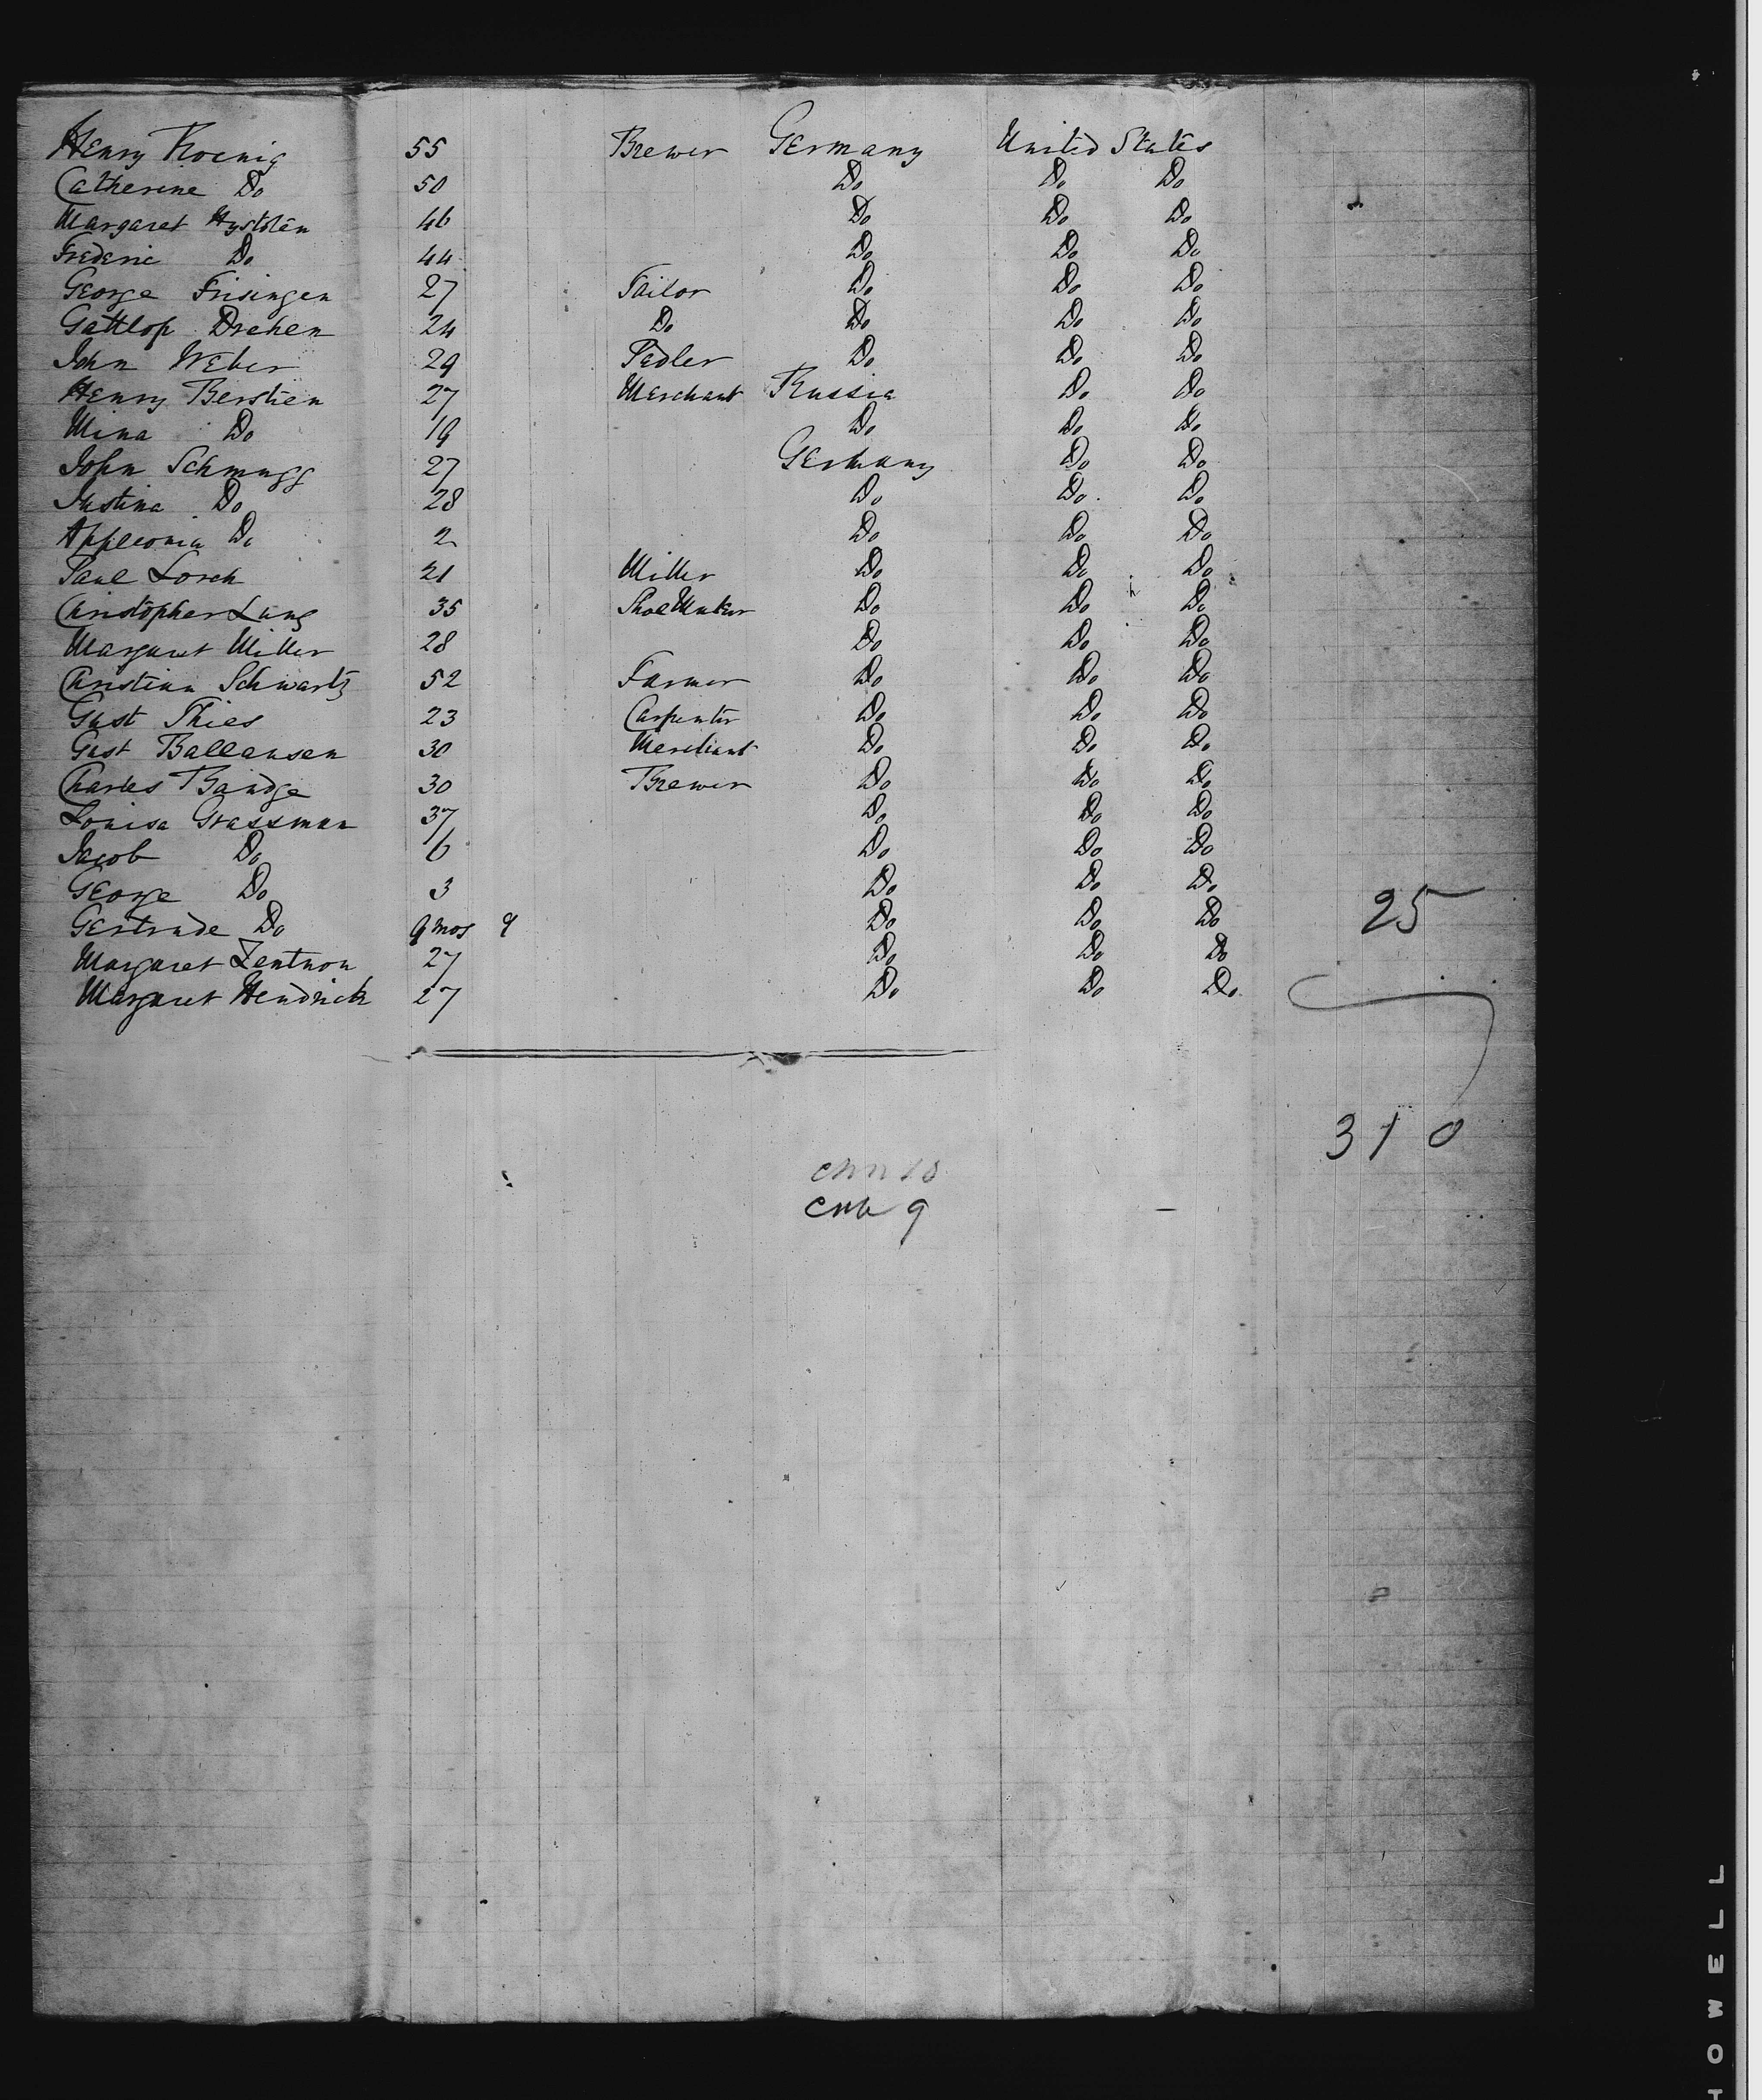 Henry Koenig 55 Brewer Germany United States
Catherine Do 50 Do Do Do
Margaret 46 Do Do Do
Frederic Do 44 Do Do Do
George Frisingen 27 Tailor Do Do Do
Gattlop Drehen 24 Do Do Do Do
John Weber 29 Pedler Do Do Do
Henry Berstien 27 Merchant Russia Do Do
Mina Do 19 Do Do Do
John Schmugg 27 Germany Do Do
Justina Do 28 Do Do Do
Appleonia Do 2 Do Do Do
Paul Lorch 21 Miller Do Do Do
Christopher Lang 35 Shoe Maker Do Do Do
Margaret Miller 28 Do Do Do
Christian Schwartz 52 Farmer Do Do Do
Gust Thies 23 Carpenter Do Do Do
Gust Ballausen 30 Merchant Do Do Do
Charles Baudge 30 Brewer Do Do Do
Louisa Grassman 37 Do Do Do
Jacob Do 6 Do Do Do
George Do 3 Do Do Do
Gertrude Do 9 mos 9 Do Do Do 25
Margaret Zentnon 27 Do Do Do
Margaret Hendrick 27 Do Do Do
310
9
HOWELL